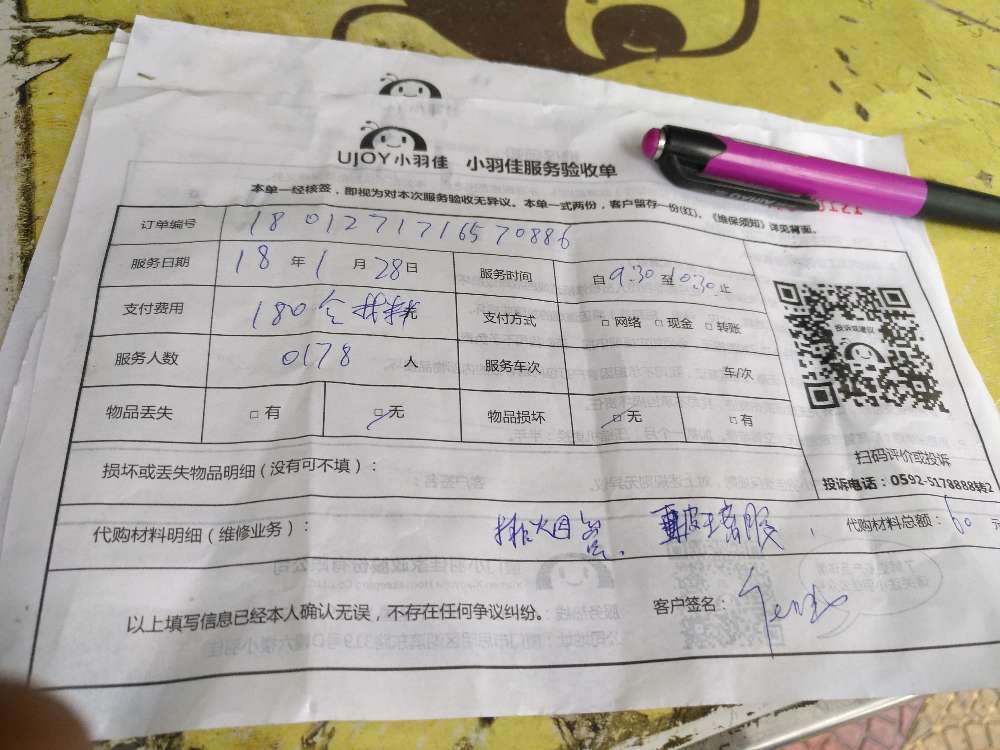 UJOY小羽佳 小羽佳服务验收单
本单一经核签，即视为对本次服务验收无异议。本单一式两份，客户留存一份(红)，《维保须知》详见背面。
订单编号 18 01271716570886
服务日期 18 年 1 月 28 日 服务时间 自 9:30 至 10:30 止
支付费用 180 含材料 元 支付方式 □ 网络 □ 现金 □ 转账
服务人数 0178 人 服务车次 车/次
物品丢失 □ 有 □ 无 物品损坏 □ 无 □ 有
投诉或建议
扫码评价或投诉
投诉电话：0592-5178888转2
损坏或丢失物品明细（没有可不填）：
代购材料明细（维修业务）： 排烟管、 代购材料总额：60 元
以上填写信息已经本人确认无误，不存在任何争议纠纷。 客户签名：